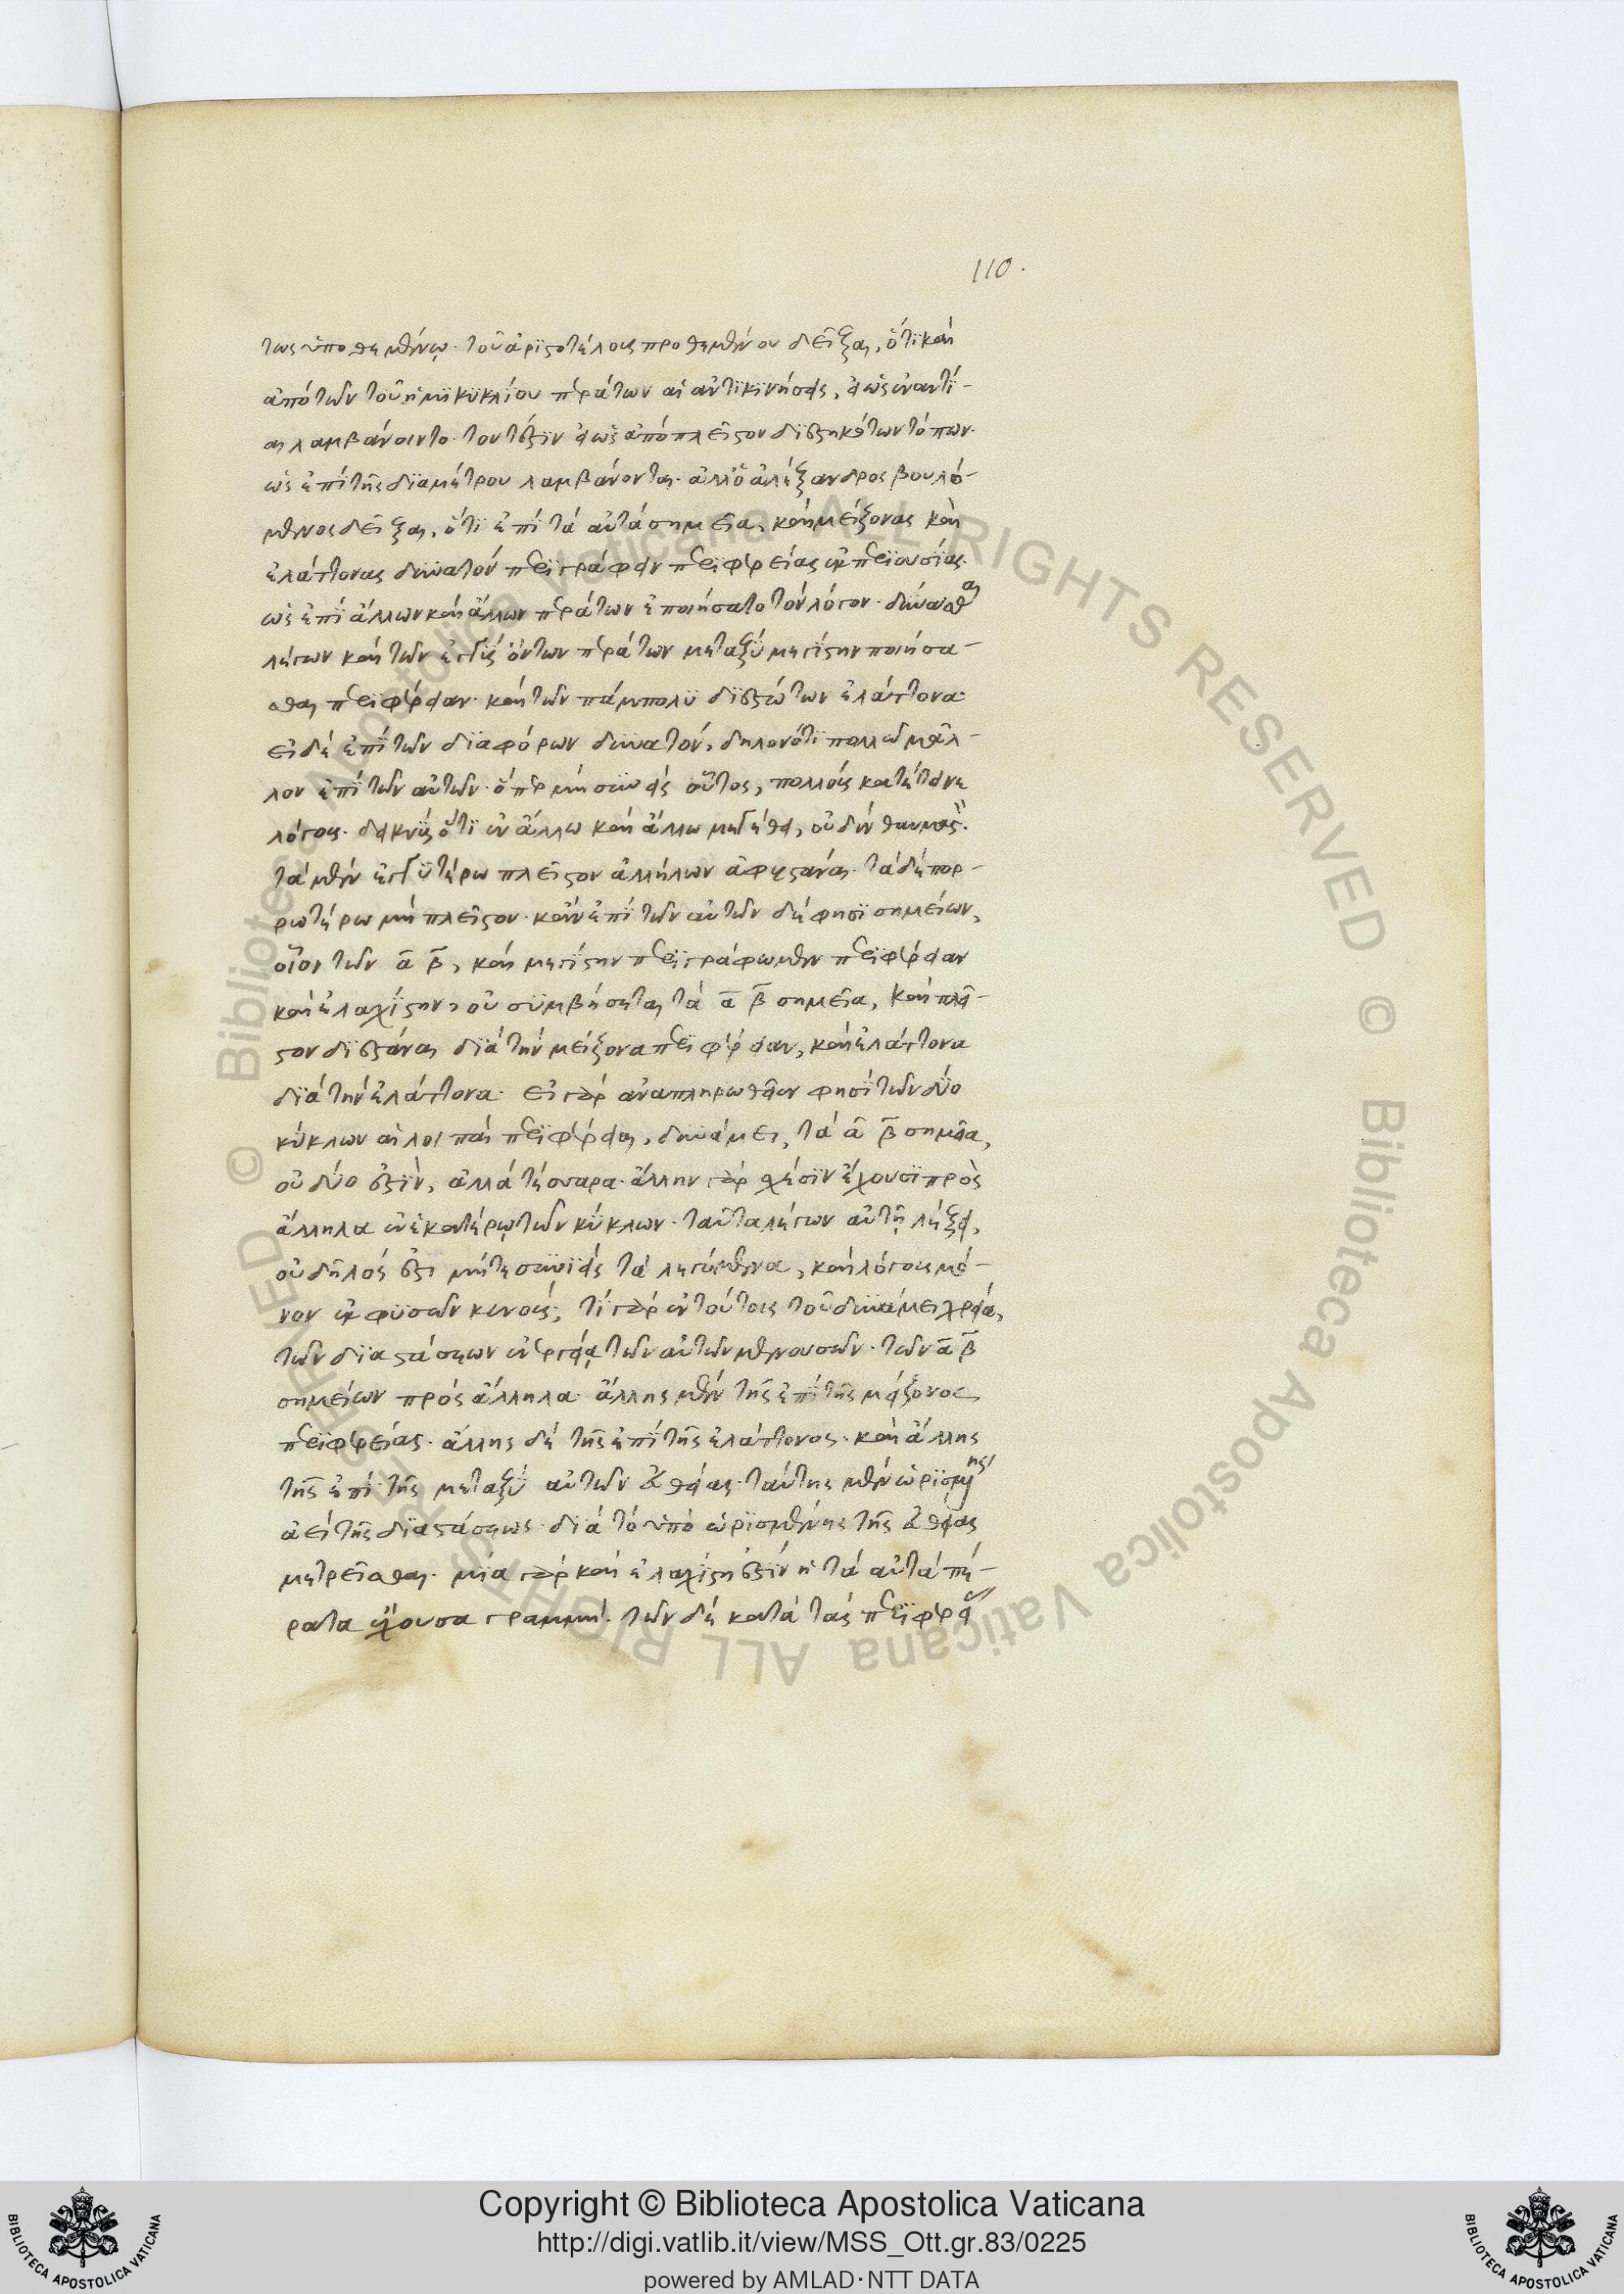 110.
τως ὑποθεμένῳ. τοῦ ἀριστοτέλους προθεμένου δεῖξαι, ὅτι καὶ
ἀπὸ τῶν τοῦ ἡμικυκλίου περάτων αἱ ἀντικινήσεις, εἰ ὡς ἐναντί-
αι λαμβάνοιντο. τουτέστιν εἰ ὡς ἀπὸ πλεῖστον διεστηκότων τόπων.
ὡς ἐπὶ τῆς διαμέτρου λαμβάνονται. ἀλλ' ὁ ἀλέξανδρος βουλό-
μενος δεῖξαι, ὅτι ἐπὶ τὰ αὐτὰ σημεῖα, καὶ μείζονας καὶ
ἐλάττονας δυνατὸν περιγράφειν περιφερείας ἐκ περιουσίας.
ὡς ἐπὶ ἄλλων καὶ ἄλλων περάτων ἐποιήσατο τὸν λόγον. δύνασθαι
λέγων καὶ τῶν ἐγγὺς ὄντων περάτων μεταξὺ μεγίστην ποιήσα-
σθαι περιφέρειαν. καὶ τῶν πάμπολυ διεστώτων ἐλάττονα.
εἰ δὲ ἐπὶ τῶν διαφόρων δυνατόν, δηλονότι πολλῷ μᾶλ-
λον ἐπὶ τῶν αὐτῶν. ὅπερ μὴ συνεὶς οὗτος, πολλοὺς κατέτεινε
λόγους. δεικνὺς ὅτι ἐν ἄλλῳ καὶ ἄλλῳ μεγέθει, οὐδὲν θαυμαστὸν.
τὰ μὲν ἐγγυτέρω πλεῖστον ἀλλήλων ἀφεστάναι. τὰ δὲ πορ-
ρωτέρω μὴ πλεῖστον. κἂν ἐπὶ τῶν αὐτῶν δέ φησι σημείων,
οἷον τῶν α β, καὶ μεγίστην περιγράφωμεν περιφέρειαν
καὶ ἐλαχίστην, οὐ συμβήσεται τὰ α β σημεῖα, καὶ πλεῖ-
στον διεστάναι διὰ τὴν μείζονα περιφέρειαν, καὶ ἐλάττονα
διὰ τὴν ἐλάττονα. εἰ γὰρ ἀναπληρωθεῖεν φησὶ τῶν δύο
κύκλων αἱ λοιπαὶ περιφέρειαι, δυνάμει, τὰ α β σημεῖα,
οὐ δύο ἐστὶν, ἀλλὰ τέσσαρα. ἄλλην γὰρ σχέσιν ἔχουσι πρὸς
ἄλληλα ἐν ἑκατέρῳ τῶν κύκλων. ταῦτα λέγων αὐτῇ λέξει,
οὐ δῆλός ἐστι μήτε συνιεὶς τὰ λεγόμενα, καὶ λόγους μό-
νον ἐκφυσῶν κενούς; τί γὰρ ἐν τούτοις τοῦ δυνάμει χρεία,
τῶν διαστάσεων ἐνεργείᾳ τῶν αὐτῶν μενουσῶν. τῶν α β
σημείων πρὸς ἄλληλα. ἄλλης μὲν τῆς ἐπὶ τῆς μείζονος
περιφερείας. ἄλλης δὲ τῆς ἐπὶ τῆς ἐλάττονος. καὶ ἄλλης
τῆς ἐπὶ τῆς μεταξὺ αὐτῶν εὐθείας. ταύτης μὲν ὡρισμένης
ἀεὶ τῆς διαστάσεως. διὰ τὸ ὑπὸ ὡρισμένης τῆς εὐθείας
μετρεῖσθαι. μία γὰρ καὶ ἐλαχίστη ἐστὶν ἡ τὰ αὐτὰ πέ-
ρατα ἔχουσα γραμμή. τῶν δὲ κατὰ τὰς περιφερεί
© Biblioteca Apostolica Vaticana ALL RIGHTS RESERVED © Biblioteca Apostolica Vaticana ALL RIGHTS RESERVED
Copyright © Biblioteca Apostolica Vaticana
http://digi.vatlib.it/view/MSS_Ott.gr.83/0225
powered by AMLAD·NTT DATA
BIBLIOTECA APOSTOLICA VATICANA
BIBLIOTECA APOSTOLICA VATICANA